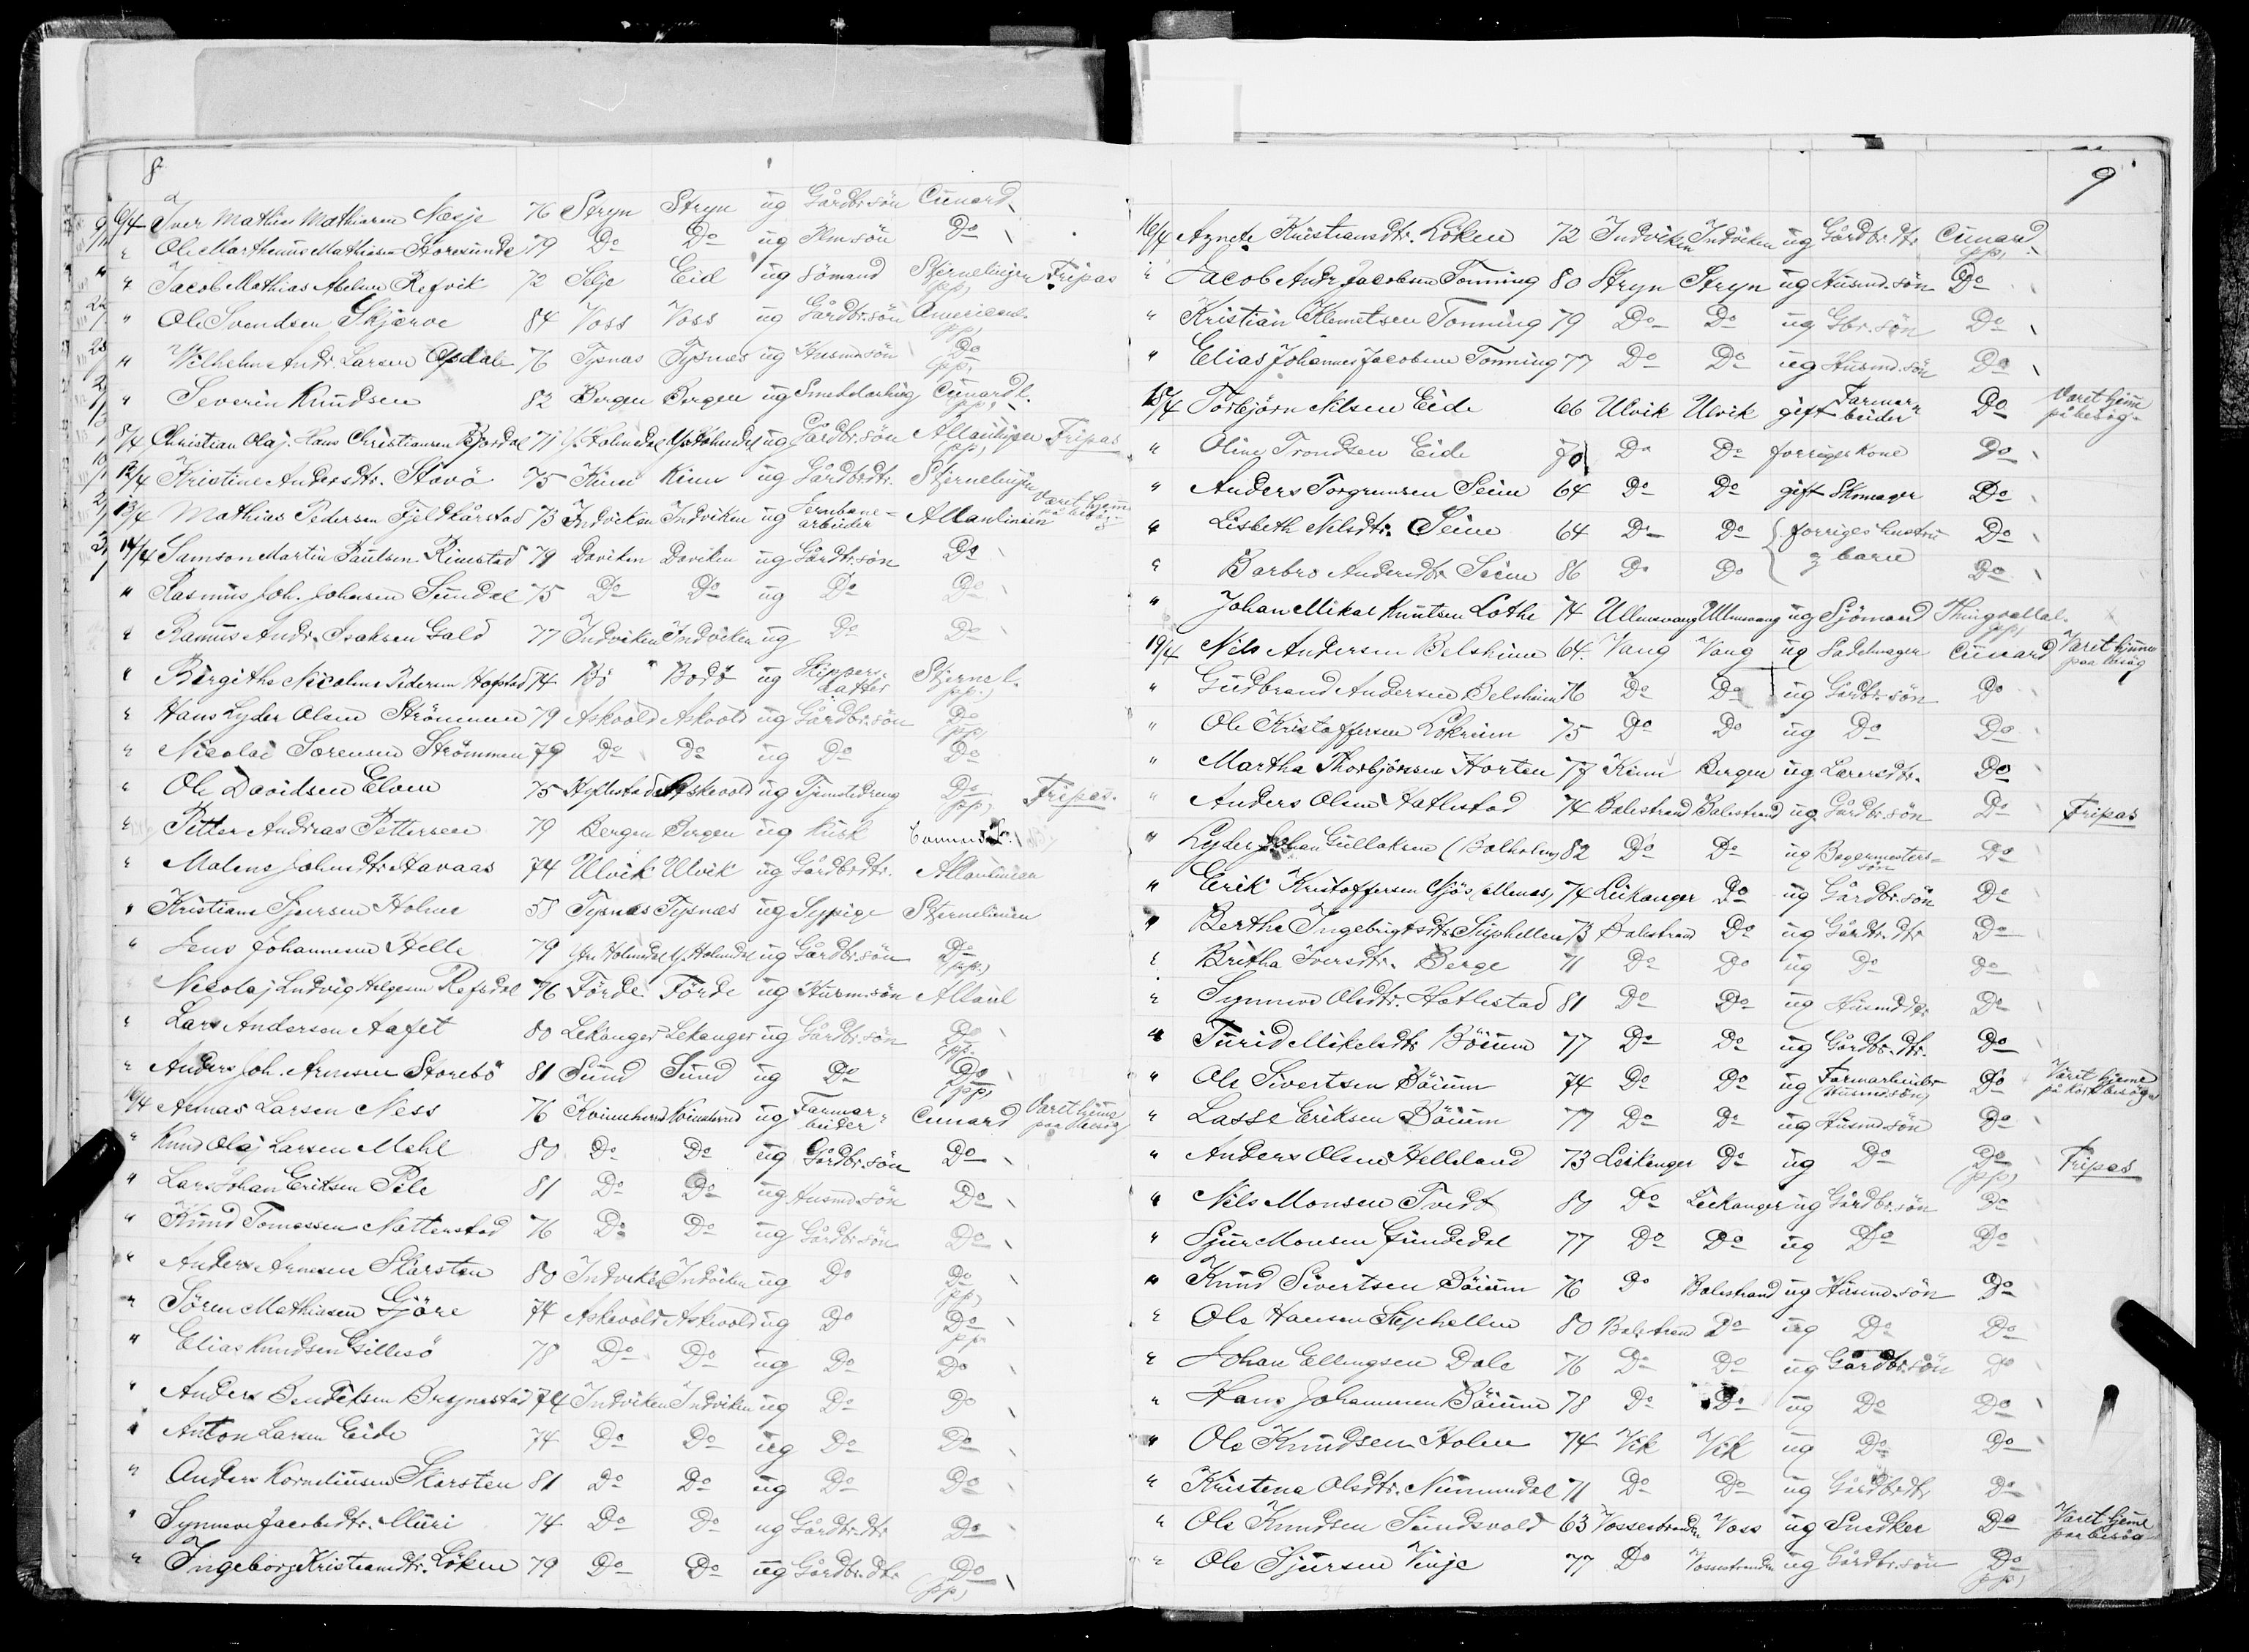 8
6/4 Iver Mathias Mathiasen Nesje 76 Stryn Stryn ug Gårdbr.sön Cunard
" Ole Marthinus Mathiasen Storesunde 79 Do Do ug Hmsön Do
" Jacob Mathias Abelsen Refvik 72 Selje Eid ug Sömand Stjernelinjen Fripas
pp,
" Ole Svendsen Skjerve 84 Voss Voss ug Gårdbr.sön American.
pp,
" Wilhelm Andr. Larsen Opdal 76 Tysnas Tysnes ug Husmdsön Do
pp,
" Severin Knudsen 82 Bergen Bergen ug Smeddarling Cunard l.
pp,
8/4 Christian Olaj. Hans Christiansen Bjordal 71 Y. Holmdal Y. Holmedal ug Gårdbr.sön Allanlinjen Fripas
pp,
12/4 Kristine Andersdtr. Stavö 75 Kinn Kinn ug Gårdbrdtr. Stjernelinjen
13/4 Mathias Pedersen Fjeldkårstad 73 Indviken Indviken ug Jernbane-arbeider Allanlinien Varet hjemme på besög
14/4 Samson Martin Paulsen Rimstad 79 Daviken Daviken ug Gårdbr.sön Do
" Rasmus Joh. Johnsen Sundal 75 Do Do ug Do Do
" Rasmus Andr. Isaksen Gald 77 Indviken Indviken ug Do Do
" Birgithe Nicoline Pedersen Hofstad 74 Bö Bodö ug Skippers-datter Stjerne l.
pp.
" Hans Lyder Olsen Strömmen 79 Askvold Askvold ug Gårdbr.sön Do
pp,
" Nicolai Sorensen Strömmen 79 Do Do ug Do Do
" Ole Davidsen Elven 75 Hyllestad Askevold ug Tjenstedreng Do Fripas.
pp,
" Petter Andreas Pettersen 79 Bergen Bergen ug Kusk Cunard L.
" Malene Johnsdtr. Havaas 74 Ulvik Ulvik ug Gårdbrdtr. Allanlinien
" Kristiane Sjursen Holme 58 Tysnes Tysnes ug Sypige Stjernelinien
" Jens Johannesen Helle 79 Ytre Holmedal Y. Holmedal ug Gårdbr.sön Do
pp.
Nicolaj Ludvig Helgesen Refsdal 76 Förde Förde ug Husm.sön Allanl
" Lars Andersen Aafet 80 Lekanger Lekanger ug Gårdbr.sön Do
pp.
" Anders Joh. Arnesen Storebö 81 Sund Sund ug Do Do
pp,
16/4 Asmas Larsen Ness 76 Kvinneherred Kvinnherred ug Farmar-beider Cunard Varet hjemme paa besög
" Knud Olaj Larsen Mehl 80 Do Do ug Gårdbr.sön Do
" Lars Johan Eriksen Pile 81 Do Do ug Husmd.sön Do
" Knud Tomassen Natterstad 76 Do Do ug Gårdbr.sön Do
" Anders Arnesen Skårsten 80 Indviken Indviken ug Do Do
pp,
" Sören Mathiasen Gjöre 74 Askevold Askevold ug Do Do
pp
" Elias Knudsen Gillesö 78 Do Do ug Do Do
" Anders Bendiksen Brynestad 74 Indviken Indviken ug Do Do
" Anton Larsen Eide 74 Do Do ug Do Do
" Anders Korneliussen Skarsten 81 Do Do ug Do Do
" Synneve Jacobsdtr. Muri 74 Do Do ug Gårdbr.dtr Do
" Ingeborg Kristiansdtr. Löken 79 Do Do ug Gårdbr.dtr Do
pp,
9
16/4 Agnete Kristiansdtr. Löken 72 Indviken Indviken ug Gårdbrdtr Cunard
pp,
" Jacob Andr. Jacobsen Tonning 80 Stryn Stryn ug Husmd.sön Do
" Kristian Klemetsen Tonning 79 Do Do ug Gbr.sön Do
" Elias Johannes Jacobsen Tonning 77 Do Do ug Husmd.sön Do
18/4 Torbjörn Nilsen Eide 66 Ulvik Ulvik gift Farmar-beider Do Varet hjem på besög.
" Oline Trondsen Eide 70 Do Do forriges kone Do
" Anders Torgrimsen Seim 64 Do Do gift Skomager Do
" Lisbeth Nelsdtr. Seim 64 Do Do { forriges hustru Do
" Barbro Andersdtr. Seim 86 Do Do og barn Do
" Johan Mikal Knutsen Lothe 74 Ullensvang Ullensvang ug Sjömand Thingvallal.
pp,
19/4 Nils Andersen Belsheim 64. Vang Vang ug Sadelmager Cunard Varet hjemme paa besög
" Gudbrand Andersen Belsheim 76 Do Do ug Gårdbr.sön Do
" Ole Kristoffersen Lökreim 75 Do Do ug Do Do
" Martha Thorbjörnsen Horten 77 Kinn Bergen ug Lærersdtr. Do
" Anders Olsen Hatlestad 74 Balestrand Balestrand ug Gårdbr.sön Do Fripas
" Lyder Johan Gullaksen (Balholm) 82 Do Do ug Bagermesters-sön Do
" Erik Kristoffersen Sjös (Menes) 74 Leikanger Do ug Gårdbr.sön Do
" Bertha Ingebrigtsdtr. Suphellen 73 Balestrand Do ug Gårdbr.dtr Do
" Britha Iversdtr. Berge 71 Do Do ug Do Do
" Synneve Olsdtr. Hatlestad 81 Do Do ug Husmd.dtr Do
" Turid Mikelsdtr Böium 77 Do Do ug Gårdbr.dtr. Do
" Ole Sivertsen Böium 74 Do Do ug Farmarbeider (Husmdsön) Do Varet hjemme på kort besög
" Lasse Eriksen Böium 77 Do Do ug Husmd.sön Do
" Anders Olsen Helleland 73 Leikanger Do ug Do Do Fripas
(pp)
" Nils Monsen Tvedt 80 Do Leikanger ug Gårdbr.sön Do
" Sjur Monsen Grindedal 77 Do Do ug Do Do
" Knud Sivertsen Böium 76 Do Balestrand ug Husmd.sön Do
" Ole Hansen Suphellen 80 Balestrand Do ug Do Do
" Johan Ellingsen Dale 76 Do Do ug Gårdbr.sön Do
" Hans Johannesen Böium 78 Do Do ug Do Do
" Ole Knudsen Holen 74 Vik Vik ug Do Do
" Kristena Olsdtr. Nummedal 71 Do Do ug Gårdbrdtr Do
" Ole Knudsen Sundsvold 63 Vossestranden Voss ug Snedker Do Varet hjem paa besög
" Ole Sjursen Vinje 77 Do Vossestranden ug Gårdbr.sön Do
pp,